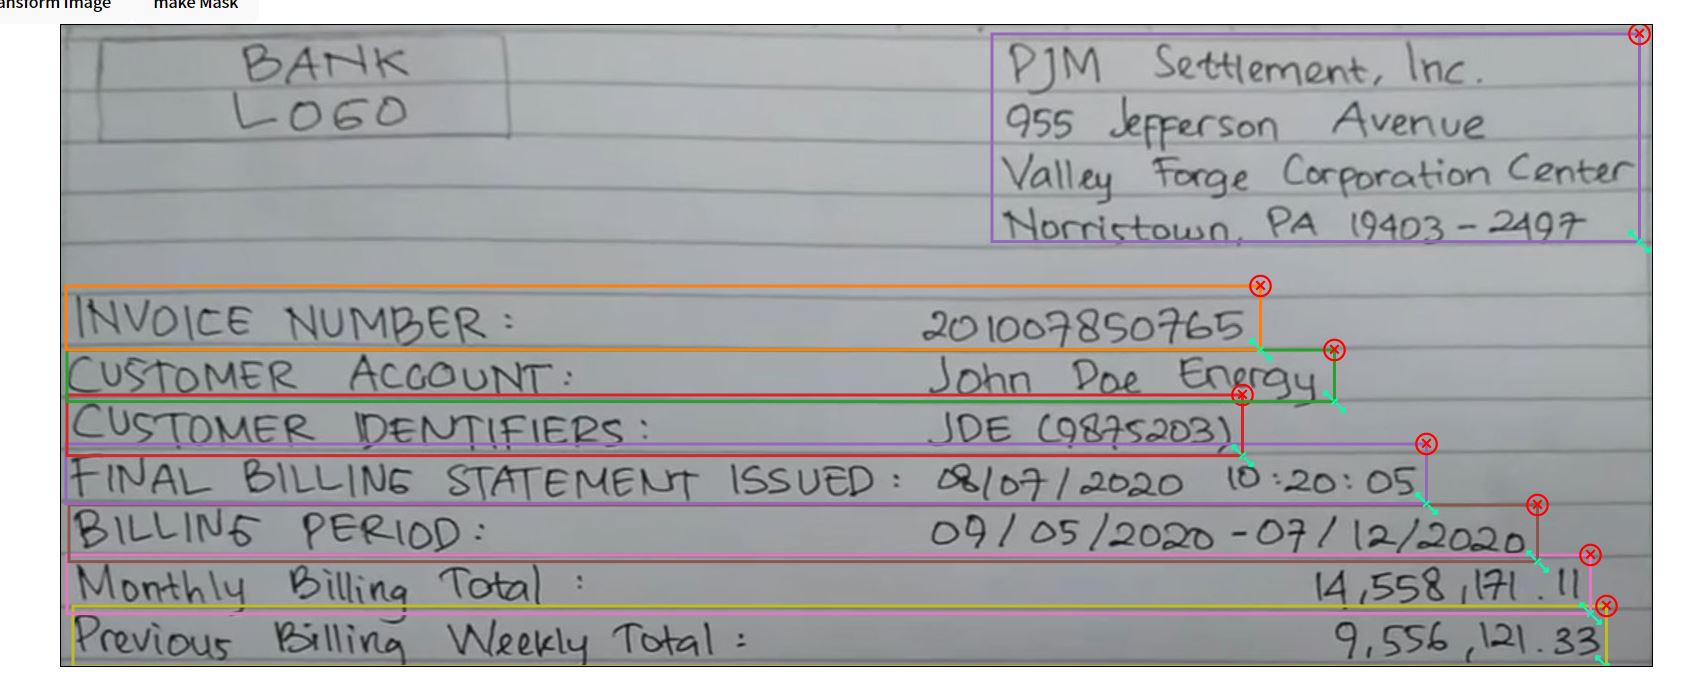 ansform Image make Mask
BANK
LOGO
PJM Settlement, Inc.
955 Jefferson Avenue
Valley Forge Corporation Center
Norristown, PA 19403-2497
INVOICE NUMBER: 201007850765
CUSTOMER ACCOUNT: John Doe Energy
CUSTOMER IDENTIFIERS: JDE (9875203)
FINAL BILLING STATEMENT ISSUED: 08/07/2020 10:20:05
BILLING PERIOD: 09/05/2020-07/12/2020
Monthly Billing Total: 14,558,171.11
Previous Billing Weekly Total: 9,556,121.33